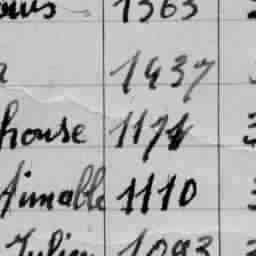 1363
1937
house 1174
Aimable 1110
Julien 1093